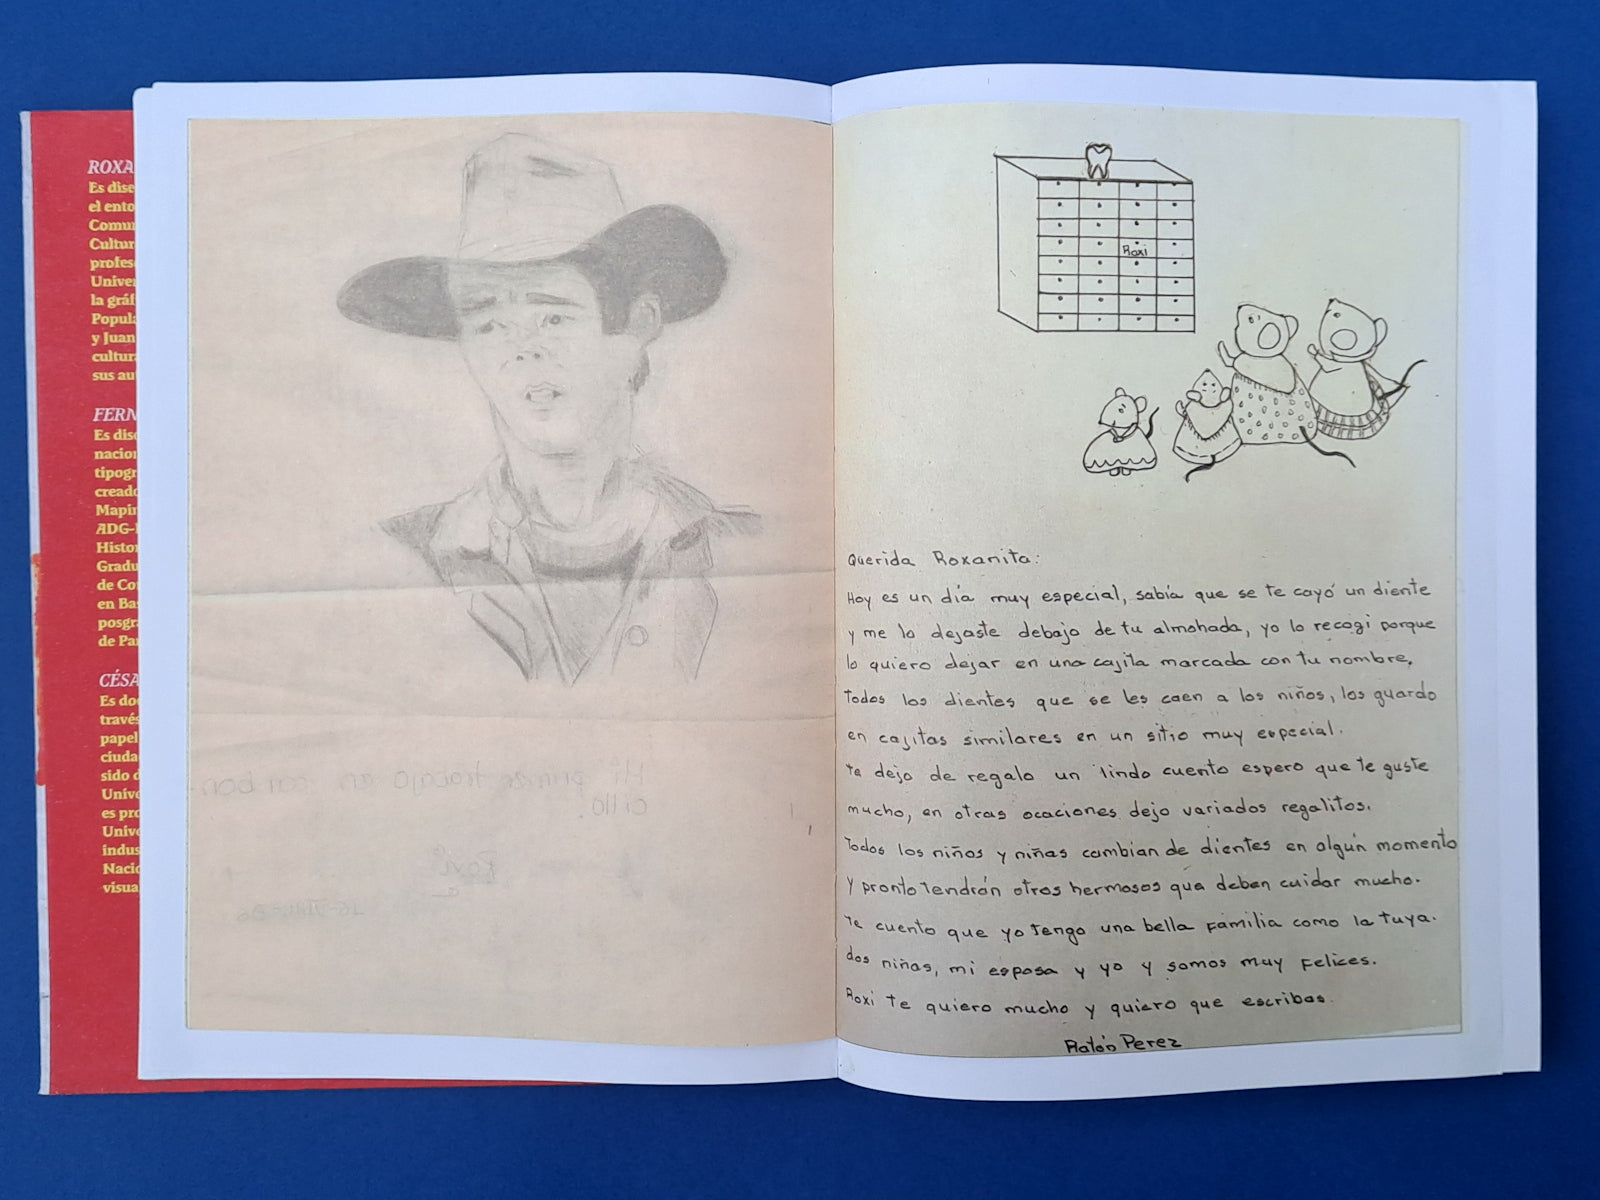 ROXA
Es dise
el ento
Comu
Cultur
profes
Univer
la gráf
Popula
y Juan
cultura
sus au
FERN
Es dis
nacion
tipogr
creado
Mapin
ADG-
Histor
Gradu
de Co
en Bas
posgra
de Par
CÉSA
Es do
travé
papel
ciuda
sido d
Unive
es pro
Unive
indus
Nacio
visua
trabajo en carbon-
cillo.
Roxi
Roxi
Querida Roxanita:
Hoy es un día muy especial, sabía que se te cayó un diente
y me lo dejaste debajo de tu almohada, yo lo recogi porque
lo quiero dejar en una cajita marcada con tu nombre.
Todos los dientes que se les caen a los niños, los guardo
en cajitas similares en un sitio muy especial.
te dejo de regalo un lindo cuento espero que te guste
mucho, en otras ocaciones dejo variados regalitos.
Todos los niños y niñas cambian de dientes en algún momento
y pronto tendrán otros hermosos que deben cuidar mucho.
Te cuento que yo tengo una bella familia como la tuya.
dos niñas, mi esposa y yo y somos muy felices.
Roxi te quiero mucho y quiero que escribas.
Ratón Perez